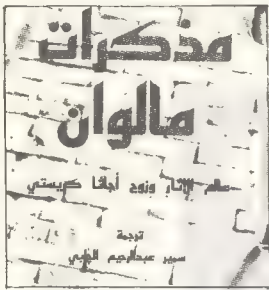 مذكرات
مالوان
عالم الآثار وزوج أجاثا كريستي
ترجمة
سمير عبدالرحيم الجلبي